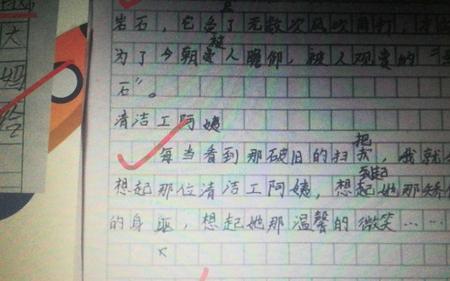 岩石，它含了无数次风吹雨打，才
为了今朝被人瞻仰，被人观赏的
石”。
清洁工阿姨
每当看到那破旧的扫把，我就
想起那位清洁工阿姨，想起她那矫
的身躯，想起她那温馨的微笑……